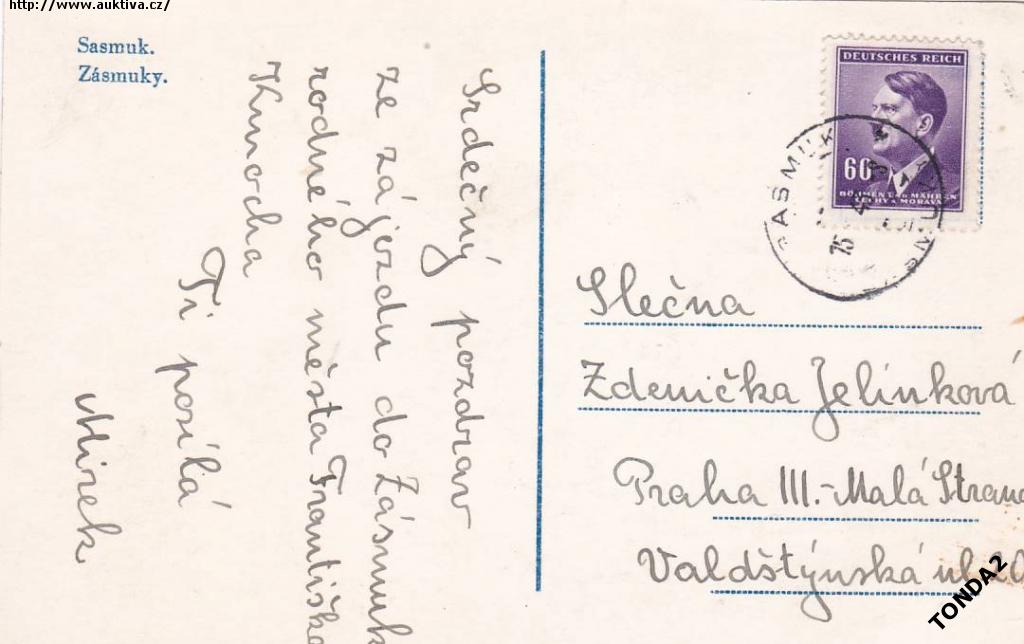 http://www.auktiva.cz/
Sasmuk.
Zásmuky.
Srdečný pozdrav
ze zájezdu do Zásmuk
rodného města Františka
Kmocha
Ti posílá
Mirek
DEUTSCHES REICH
60
BÖHMEN UND MÄHREN
ČECHY A MORAVA
Slečna
Zdenička Jelínková
Praha III.-Malá Strana
Valdštýnská ul.
TONDA2